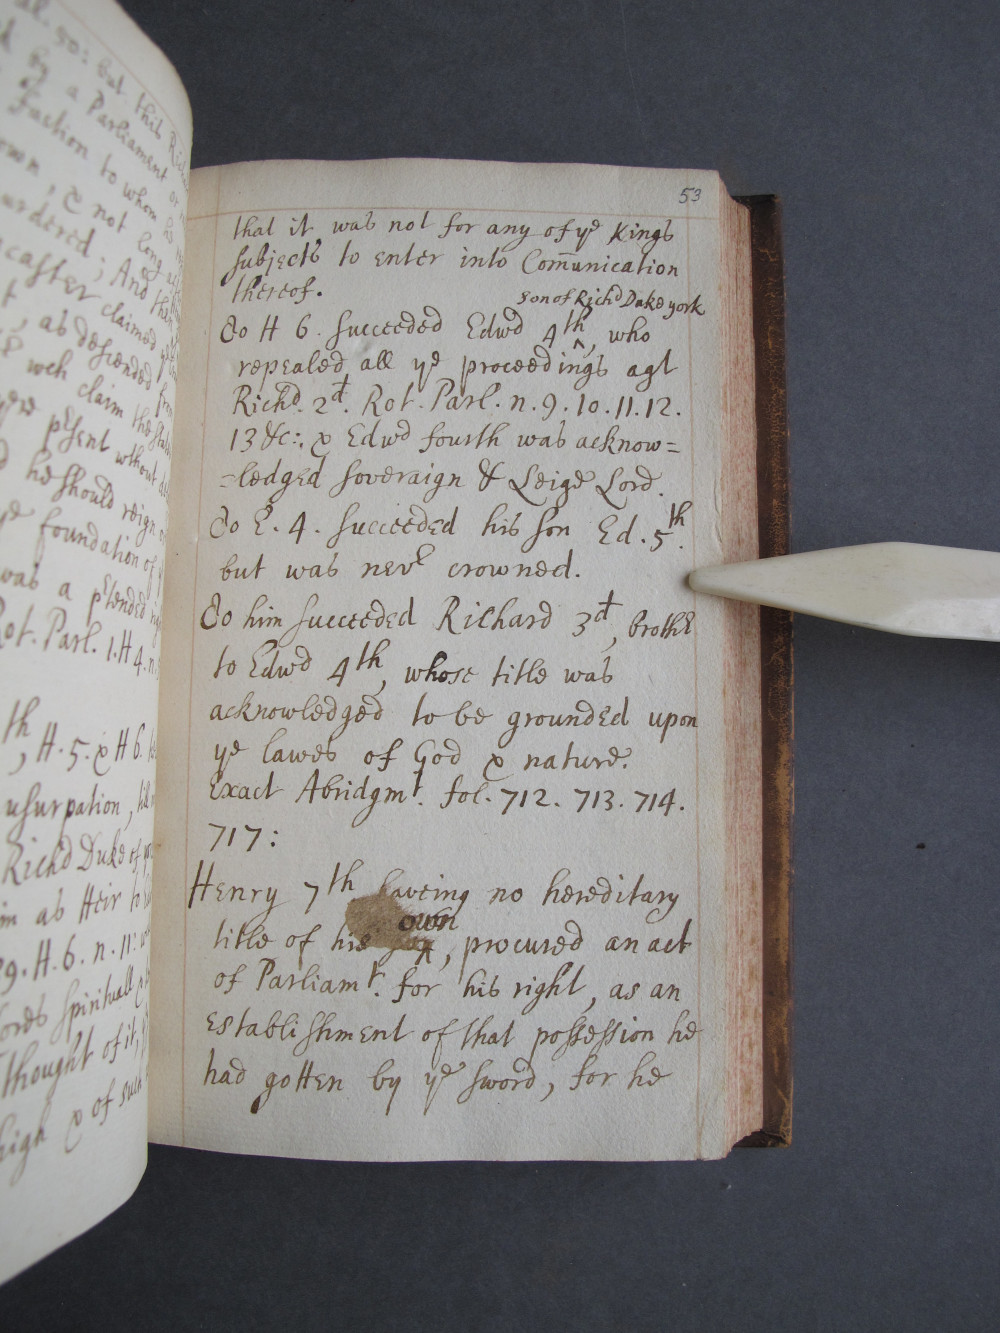 53
that it was not for any of ye Kings
subjects to enter into Com̄unication
thereof.
son of Richd Duke york
To H 6. succeeded Edwd 4th ^, who
repealed all ye proceedings agt
Richd. 2d. Rot. Parl. n. 9. 10. 11. 12.
13 &c: & Edwd fourth was acknow=
=ledged soveraign & Leige Lord.
To E. 4. succeeded his son Ed. 5th.
but was never crowned.
To him succeeded Richard 3d, brother
to Edwd 4th, whose title was
acknowledged to be grounded upon
ye lawes of God & nature.
Exact Abridgmt. fol. 712. 713. 714.
717:
Henry 7th haveing no hereditary
own
title of his, procured an act
of Parliamt. for his right, as an
Establishment of that possession he
had gotten by ye sword, for he
but this
by a Parliament or
Faction to whom
own, & not long
urdered; And then
caster claimed
, as descended from
wch claim the
psent without
he should reign
ye foundation of
was a ptended
Rot. Parl. 1. H 4. n.
th, H. 5. & H 6.
usurpation, till
Richd Duke of
as Heir to
9. H. 6. n. 11:
ords spirituall &
thought of it,
high & of such